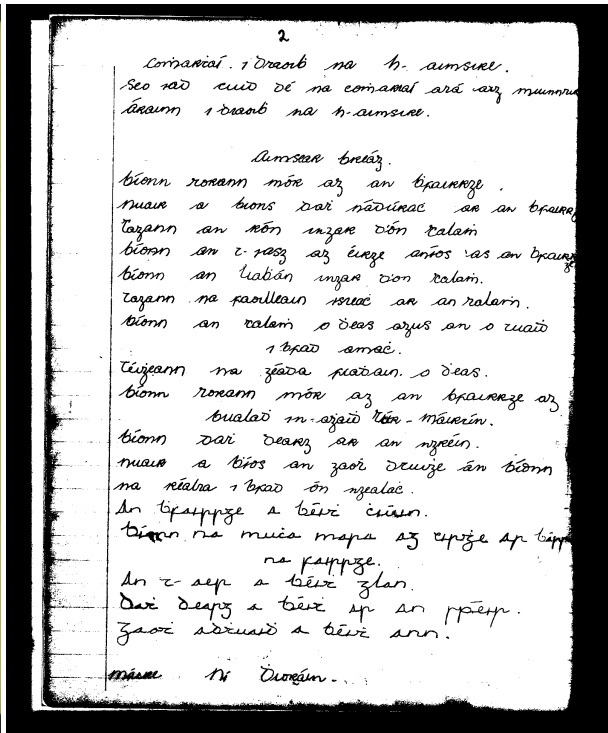 2
Comartaí. i dtaoib na h-aimsire.
Seo iad cuid dé na comartaí atá ag muinntir
Árainn i dtaoib na h-aimsire.
Aimsear breáġ.
Bíonn torann mór ag an ḃfairrge.
Nuair a bíons daṫ nádúraċ ar an ḃfairrge
Tagann an rón ingar d'ón talaṁ
Bíonn an t-iasg ag éirġe aníos as an ḃfairrge
Bíonn an liabán ingar d'on talaṁ.
Tagann na faoilleáin isteaċ ar an talaṁ.
Bíonn an talaṁ ó ḋeas agus an ó tuaiḋ
i ḃfad amaċ.
Téiġeann na géaḋa fiaḋáin ó ḋeas.
Bíonn torann mór ag an ḃfairrge ag
bualaḋ in-aġaiḋ Tór-Máirtín.
Bíonn daṫ dearg ar an ngréin.
Nuair a bíos an gaoṫ druiḋṫe bíonn
na réalta i ḃfad ón ngealaċ.
An ḃfairrge a ḃeiṫ ciúin.
Bíonn na muca mara ag eirġe ar bárr
na fairrge.
An t-aer a ḃeiṫ glan.
Daṫ dearg a ḃeiṫ ar an spéir.
Gaoṫ aduaiḋ a ḃeiṫ ann.
Máire Ní Dioráin.